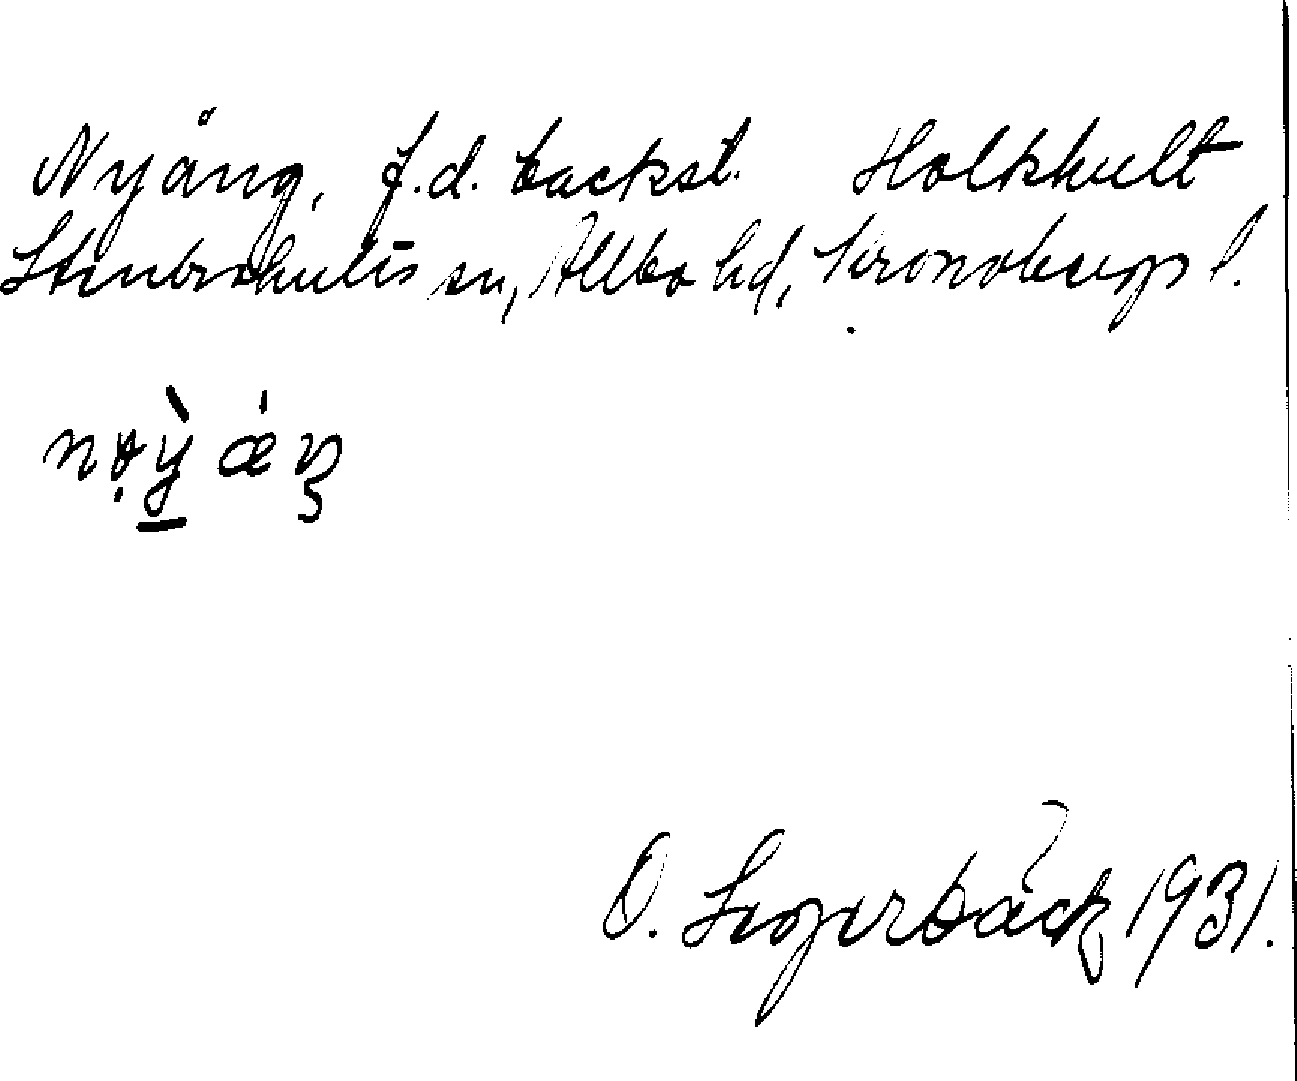 Nyäng, f.d. backst. Holkhult
Stenbrohults sn, Allbo hd, Kronobergs l.
nøỳ æ̇ŋ
O. Segerbäck 1931.